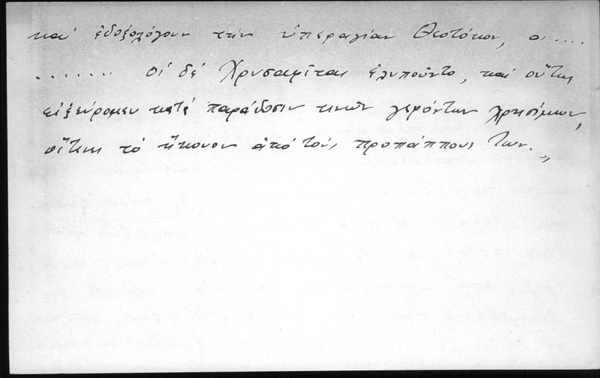 καί ἐδοξολόγουν τήν ὑπεραγίαν Θεοτόκον, ο.....
....... οἱ δέ Χρυσαφῖται ἐλυποῦντο, καί οὕτως
εἰξεύρομεν κατά παράδοσιν τινῶν γερόντων χρησίμων,
οἵτινες τό ἤκουον ἀπό τούς προπάππους των.„